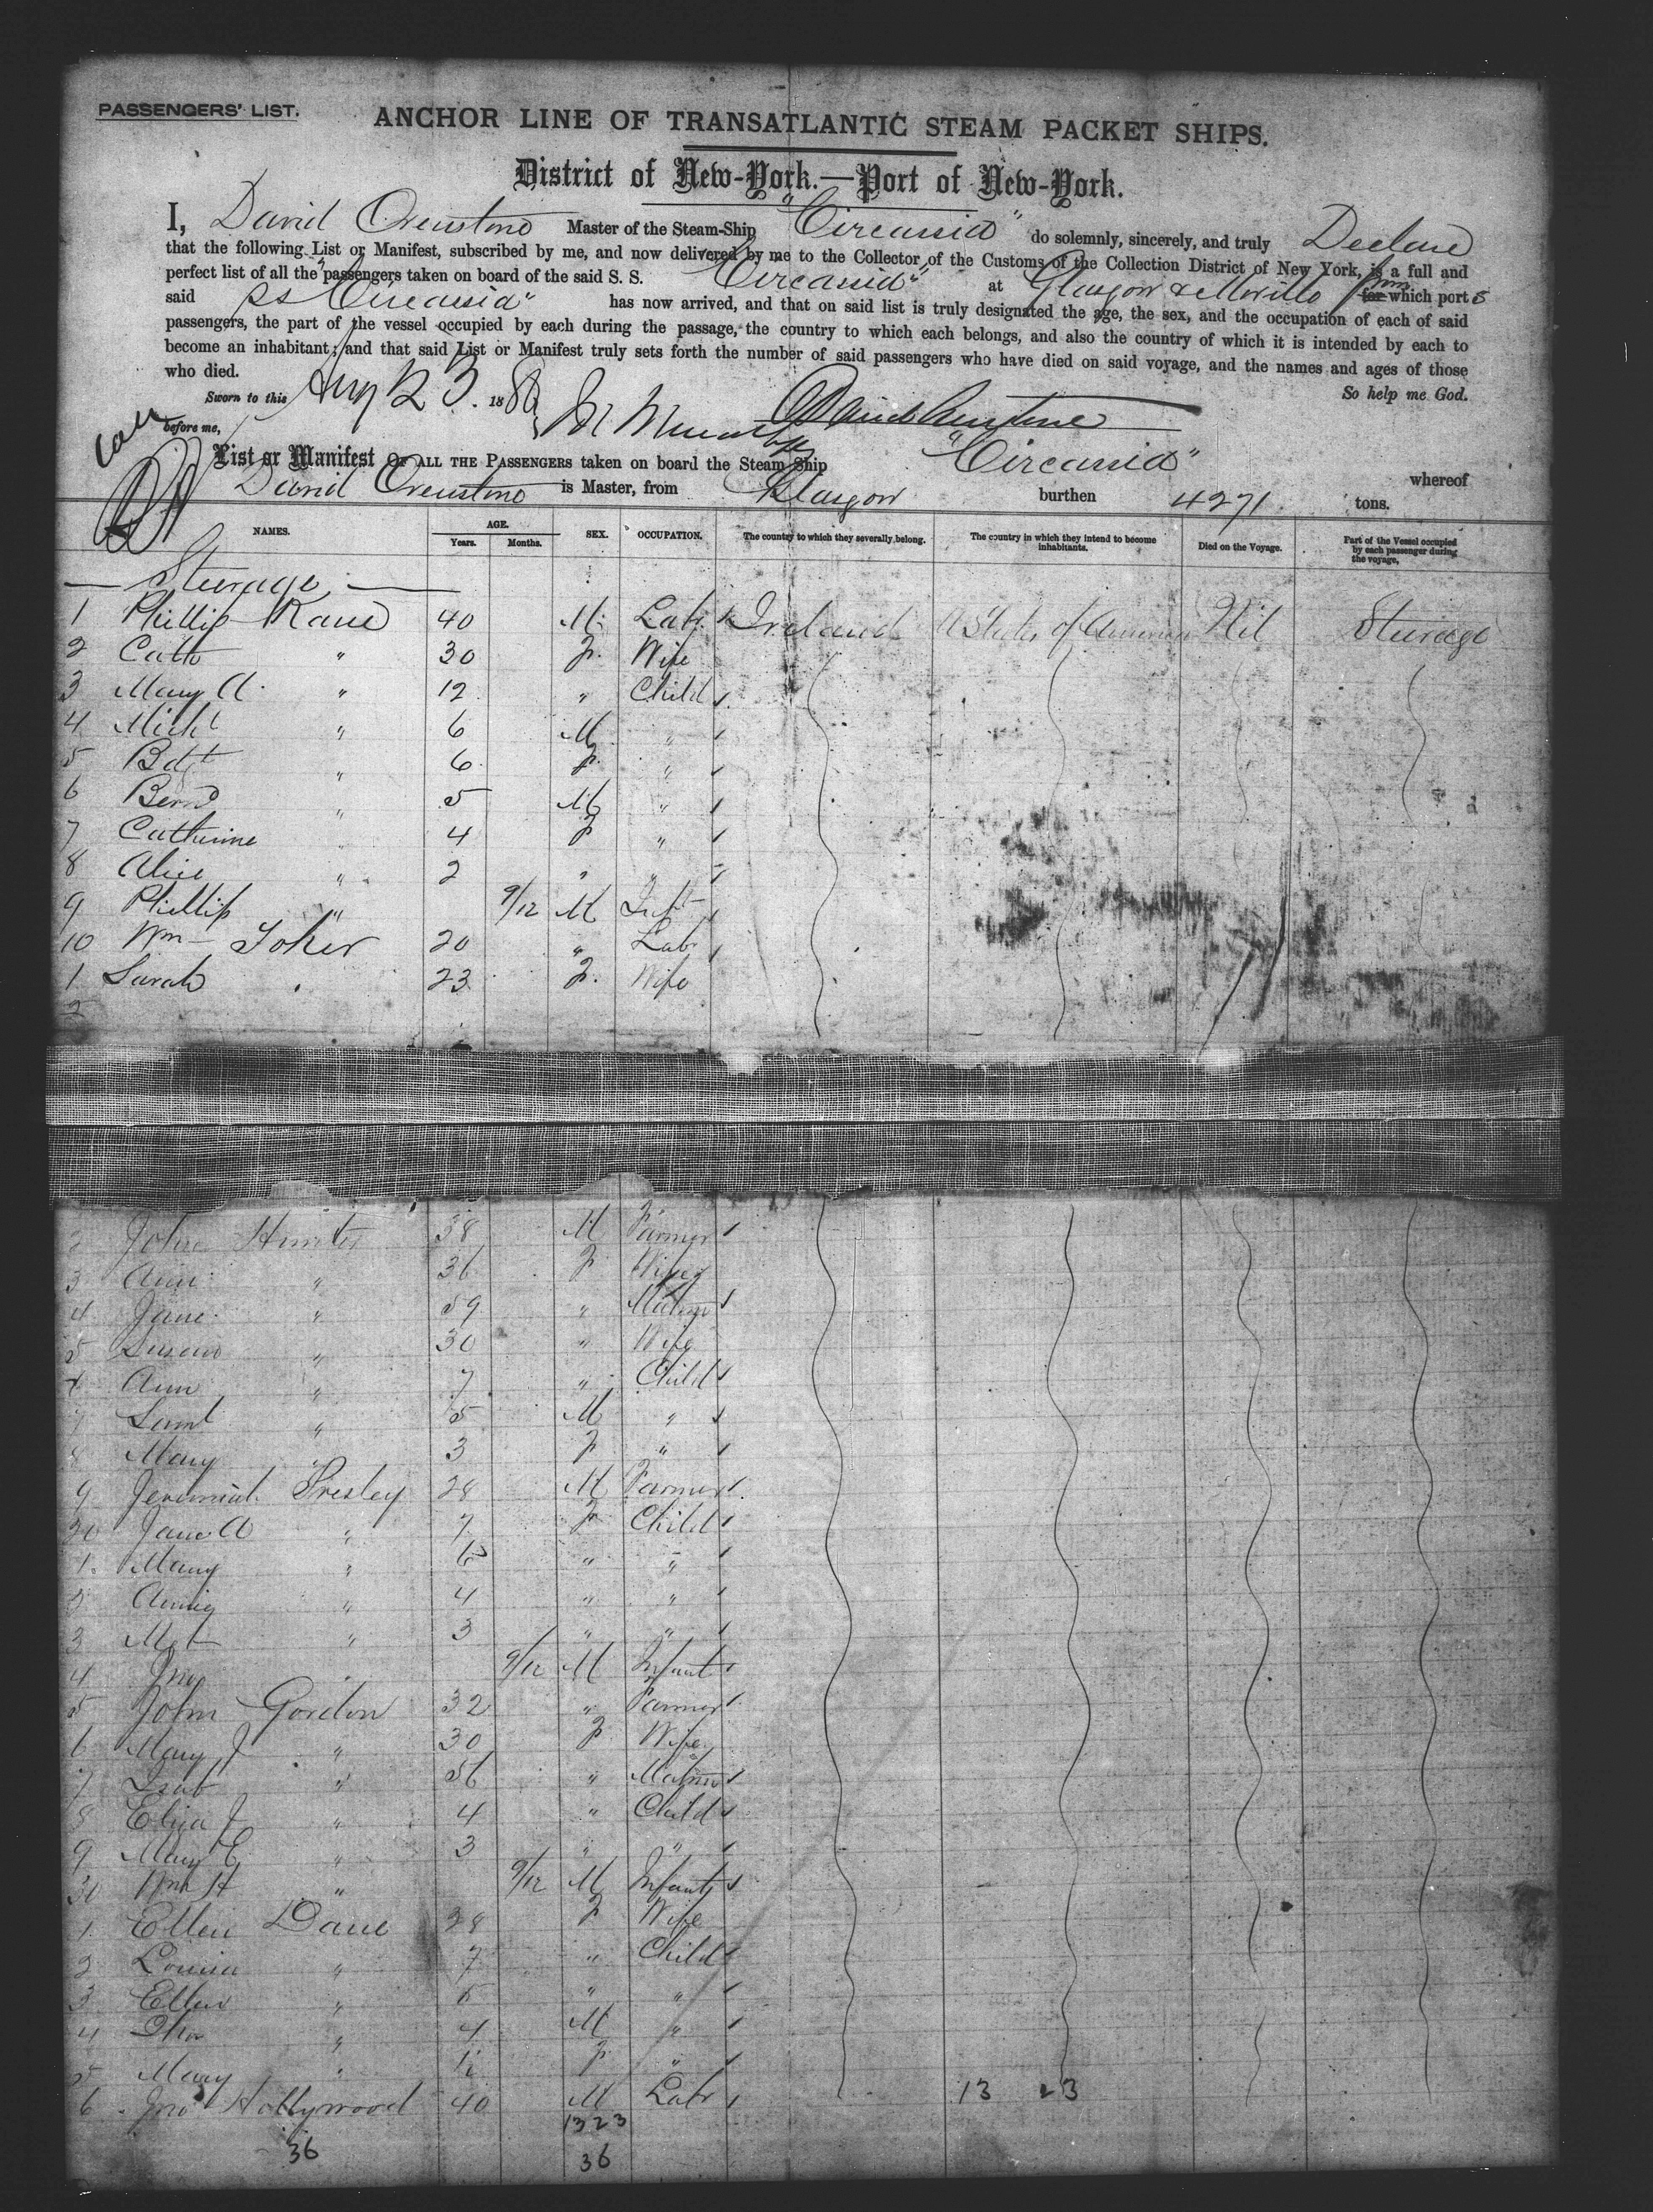 PASSENGERS' LIST.
ANCHOR LINE OF TRANSATLANTIC STEAM PACKET SHIPS.
District of New-York.—Port of New-York.
I, David Ovenstone Master of the Steam-Ship "Circassia" do solemnly, sincerely, and truly Declare
that the following List or Manifest, subscribed by me, and now delivered by me to the Collector of the Customs of the Collection District of New York, is a full and
perfect list of all the passengers taken on board of the said S. S. "Circassia" at Glasgow & Moville from
said SS "Circassia" has now arrived, and that on said list is truly designated the age, the sex, and the occupation of each of said for which port s
passengers, the part of the vessel occupied by each during the passage, the country to which each belongs, and also the country of which it is intended by each to
become an inhabitant; and that said List or Manifest truly sets forth the number of said passengers who have died on said voyage, and the names and ages of those
who died.
So help me God.
Sworn to this Aug 23 1880
before me, David Ovenstone
List or Manifest OF ALL THE PASSENGERS taken on board the Steam Ship "Circassia" whereof
David Ovenstone is Master, from Glasgow burthen 4271 tons.
NAMES. AGE. Years. Months. SEX. OCCUPATION. The country to which they severally belong. The country in which they intend to become inhabitants. Died on the Voyage. Part of the Vessel occupied by each passenger during the voyage,
Steerage
1 Phillip Kane 40 M Labr Ireland U States of America Nil Steerage
2 Cath " 30 F. Wife
3 Mary A. " 12 " Child
4 Michl " 6 M "
5 Bdgt " 6 F. "
6 Bernd " 5 M "
7 Catherine 4 F "
8 Alice " 2 " "
9 Phillip " 9/12 M Inft
10 Wm Toher 20 " Labr
1 Sarah 23 F. Wife
2
2 John Hunter 38 M Farmer
3 Ann " 36 F Wife
4 Jane " 59 " Matron
5 Susan " 30 " Wife
Ann " 7 " Child
7 Saml " 5 M "
8 Mary " 3 F "
9 Jeremiah Presley 28 M Farmer
20 Jane A " 7 F Child
1 Mary " 6 " "
2 Annie " 4 " "
3 Mgt " 3 " "
4 Jno " 9/12 M Infant
5 John Gordon 32 " Farmer
6 Mary J " 30 F Wife
7 Isab " 56 " Matron
8 Eliza J " 4 " Child
9 Mary E " 3 " "
30 Wm H " 9/12 M Infant
1 Ellen Dane 28 F Wife
2 Louisa " 7 " Child
3 Ellen " 5 " "
4 " 4 M "
5 Mary " F "
6 Jno Hollywood 40 M Labr
13 23
1323
36 36